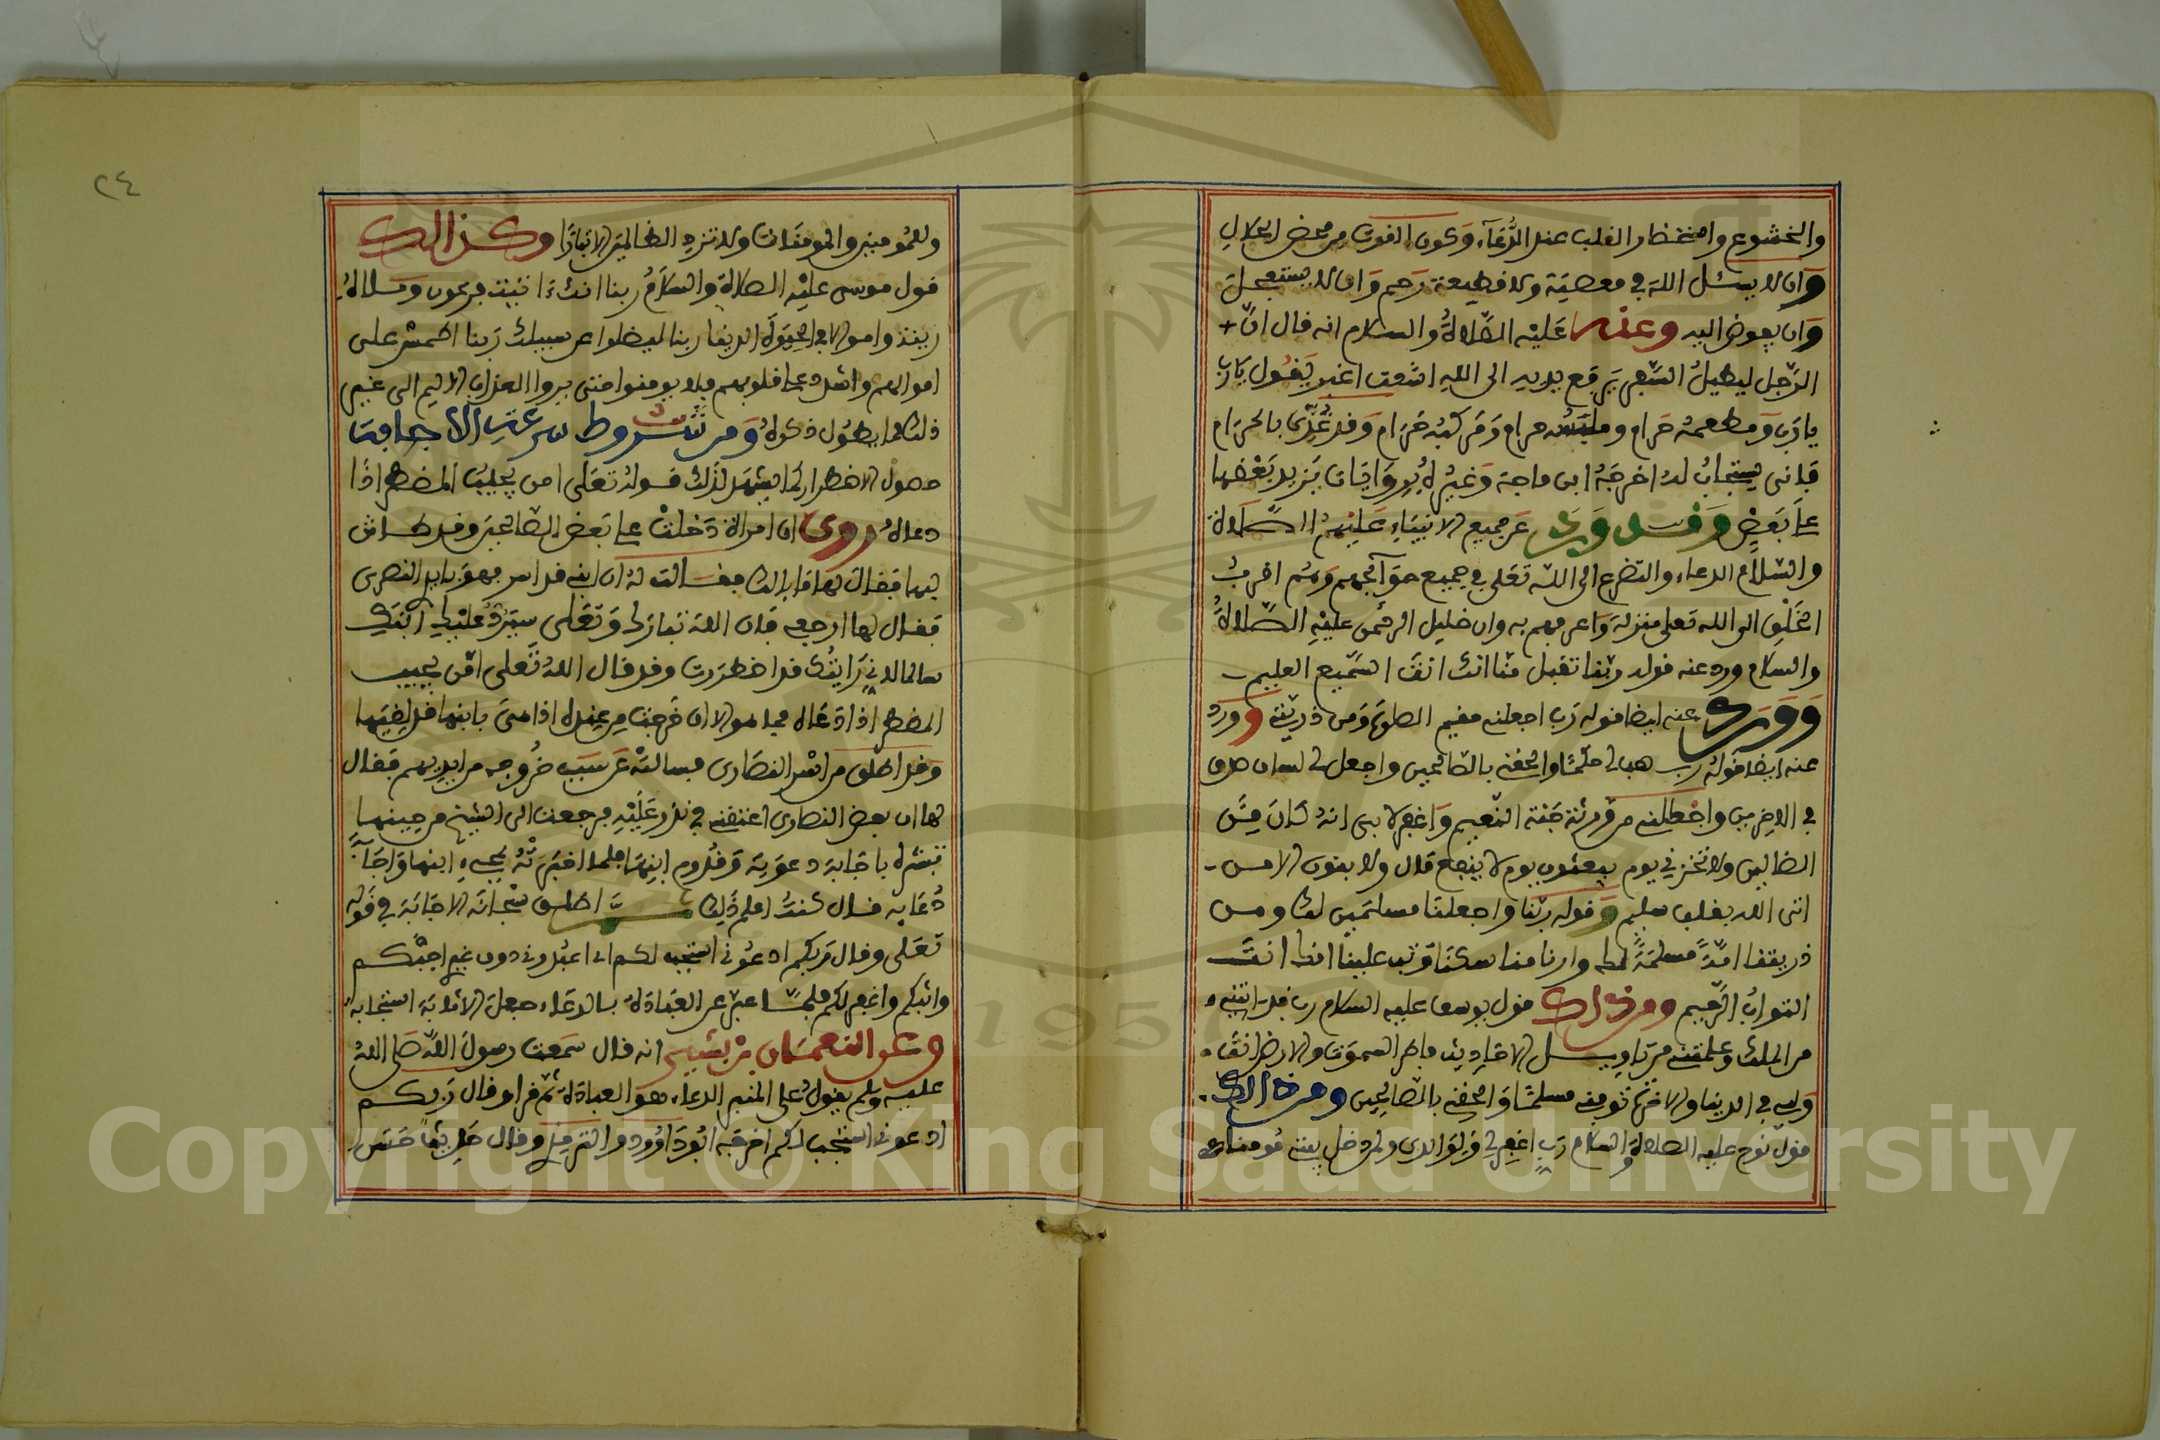 والخشوع واستحضار القلب عند الدُّعَاۤء وكون القوت من محض الحلالِ
وَان لا يسئل اللهَ في معصيَة ولا قطيعة رَحِم وَان لا يستعجلَ
وَان يفوض اليه وعنه عَلَيْه الصَّلَاةُ والسلام انه قال انَّ
الرَّجل ليطيلُ السَّفر يَرفع يديه الى اللهِ اشعث اغبر يَقُول يَارَب
يَارَب وَمَطعمهُ حَرام وملبَسُه حرام وَمركبُه حَرَام وَقد غُذِّىَ بالحرَام
فَانى يستجابُ لهُ اخرجَهُ ابن ماجة وَغيرُهُ بِروَايَات يَزيد بَعْضها
على بَعْضٍ وَقد وَرد عَن جميع الانبيَاءِ عَليهمُ الصَّلَاة
والسَّلام الدعاء والتضرع الى اللَّه تَعَلى في جميع حوَآئجهم وَهُم اقربُ
الخَلْقِ الى الله تعلى منزلة وَاعرفهم به وان خليل الرحمن عليْهِ الصَّلَاةُ
والسلام ورد عنه قوله ربنا تقبل مِنَّا انك انتَ السَّميع العليم
وَوَرد عنه ايضا قوله رَب اجعلنى مقيم الصلوة ومن ذريتى وورد
عنه ايضا قوله رب هب لى حكمًا والحقنى بالصَّالحين واجعل لى لسان صدق
في الاخِرين واجعلنى من وَرثة جَنة النَّعيم وَاغفر لابى انهُ كَانَ مِنَ
الضالين ولا تخزنى يوم يبعثون يوم لا ينفع مَال ولا بنون الا من
اتى الله بقلب سليم وَقوله رَبَّنَا واجعلنا مسلمَين لك ومن
ذريتنا امَّةً مسلمَةً لك وارنا مناسكنَا وَتب علينا انك انتَ
التوابُ الرَّحيم ومن ذلك قول يوسف عليه السلام رب قد اتيتنى
من الملك وَعلمتنى من تَاويل الاحَادِيث فاطر السموَت والارض انتَ
وَليى في الدنيا والاخرة توفنى مسلمًا وَالحقنى بالصَّالحين ومن ذالك
قول نوح عليه الصلاة والسلام رَبِّ اغفر لى وَلِوَالدى ولمن دخل بيتى مُومنا
وللمُومنين والمومنَات ولا تزدِ الظالمين الا تبَارًا وكذالك
قول موسى عليْه الصلاة والسلامُ ربنا انك اتيت فرعون وَملاهُ
زينة وامولا في الحيوة الدنيا ربنا ليضلوا عن سبيلك رَبنا اطمس على
امولهم واشدد على قلوبهم فلا يومنوا حتى يروا العذاب الاليم الى غير
ذلك مما يطُول ذكرهُ وَمن شروط سرعة الاجابة
حصول الاضطرار كما يشهد لذلك قولهُ تعَلى امن يجيبُ المضطر اذا
دعاهُ روى ان امراة دَخلتْ على بَعض الصَّالحينَ وقد طاش
لبها فقال لها مَا بالك فقالت لهُ ان ابنى قد اسر فهوَ بايد النصرى
فقال لها ارجعى فان اللهَ تبارك وَتعَلى سيَرُدُّ عليْكِ ابنَكِ
سالما لانى رَايتُك قد اضطرَرت وقد قال اللهُ تعلى امَّن يجيب
المضطر اذا دَعَاهُ فما هو الا ان خرجت من عنده اذا هىَ بابنها قد لقيَها
وَقد اطلق من اسر النصَارى فسالتهُ عَن سَبب خُروجه من ايديهم فقال
لها ان بعض النصَارى اعتقنى في نذر عَلَيْهِ فرجعت الى الشيخ من حِينها
تبشره باجَابة دعوَتِهِ وَقدُوم ابنِهَا فلما اخبَرَتْهُ بمجىءِ ابنها وَاجَابَة
دُعَايه قال كنتُ اعلم ذَلِك اطلق سُبحانَهُ الاجَابَة في قوله
تَعَلى وقال رَبكم ادعُونى استجب لكم اى اعبُدونى دون غيرى اجبْكم
واثبكم واغفر لكم فلمَّا عبر عن العبَادَة بالدعَاء جعل الاثابَة استجابة
وعن النعمَان بن بَشير انه قال سَمعت رسولَ اللَّه صَلى اللهُ
عليه وسلم يقول على المنبر الدعاء هوَ العبادَة ثمَّ قرا وقال رَبكم
ادعونى استجب لكم اخرجَه ابُو دَاوُود والترمذى وقال حَدِيث حَسن
٢٤
1957
Copyright © King Saud University